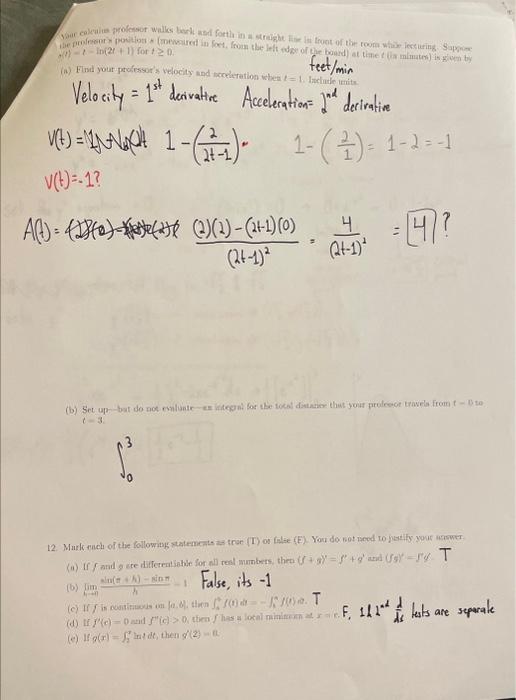 Your calculus professor walks back and forth in a straight line in front of the room while lecturing. Suppose
the professor's position s (measured in feet, from the left edge of the board) at time t (in minutes) is given by
s(t) = t − ln(2t + 1) for t ≥ 0.
feet/min
(a) Find your professor's velocity and acceleration when t = 1. Include units.
Velocity = 1st derivative Acceleration = 2nd derivative
V(t) = 1 - (2/(2t-1)) 1 - (2/1) = 1 - 2 = -1
V(t) = -1?
A(t) = ((2)(2) - (2t-1)(0))/(2t-1)² = 4/(2t-1)² = 4?
(b) Set up—but do not evaluate—an integral for the total distance that your professor travels from t = 0 to
t = 3.
∫₀³
12. Mark each of the following statements as true (T) or false (F). You do not need to justify your answer.
(a) If f and g are differentiable for all real numbers, then (f + g)' = f' + g' and (fg)' = f'g'. T
(b) lim h→0 (sin(π + h) − sin π)/h = 1 False, its -1
(c) If f is continuous on [a, b], then ∫ f(t) dt = − ∫ f(t) dt. T
(d) If f'(c) = 0 and f''(c) > 0, then f has a local minimum at x = c. F, 1 & 2nd tests are separate
(e) If g(x) = ∫ ln t dt, then g'(2) = 0.